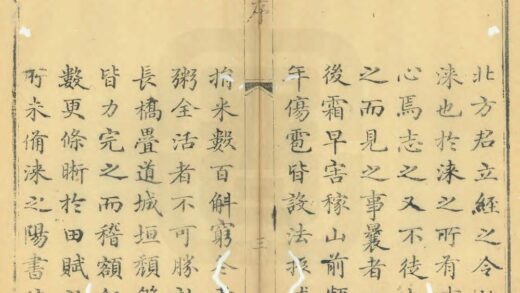 北方君立經之令
淶也於淶之所有
心焉志之又不徒
之而見之事曩者
後霜早害稼山前
年傷雹皆設法振
序
三
捐米數百斛窮
粥全活者不可勝
長橋疊道城垣頹
皆力完之而稽額
數更條晰於田賦
所未備淶之陽書